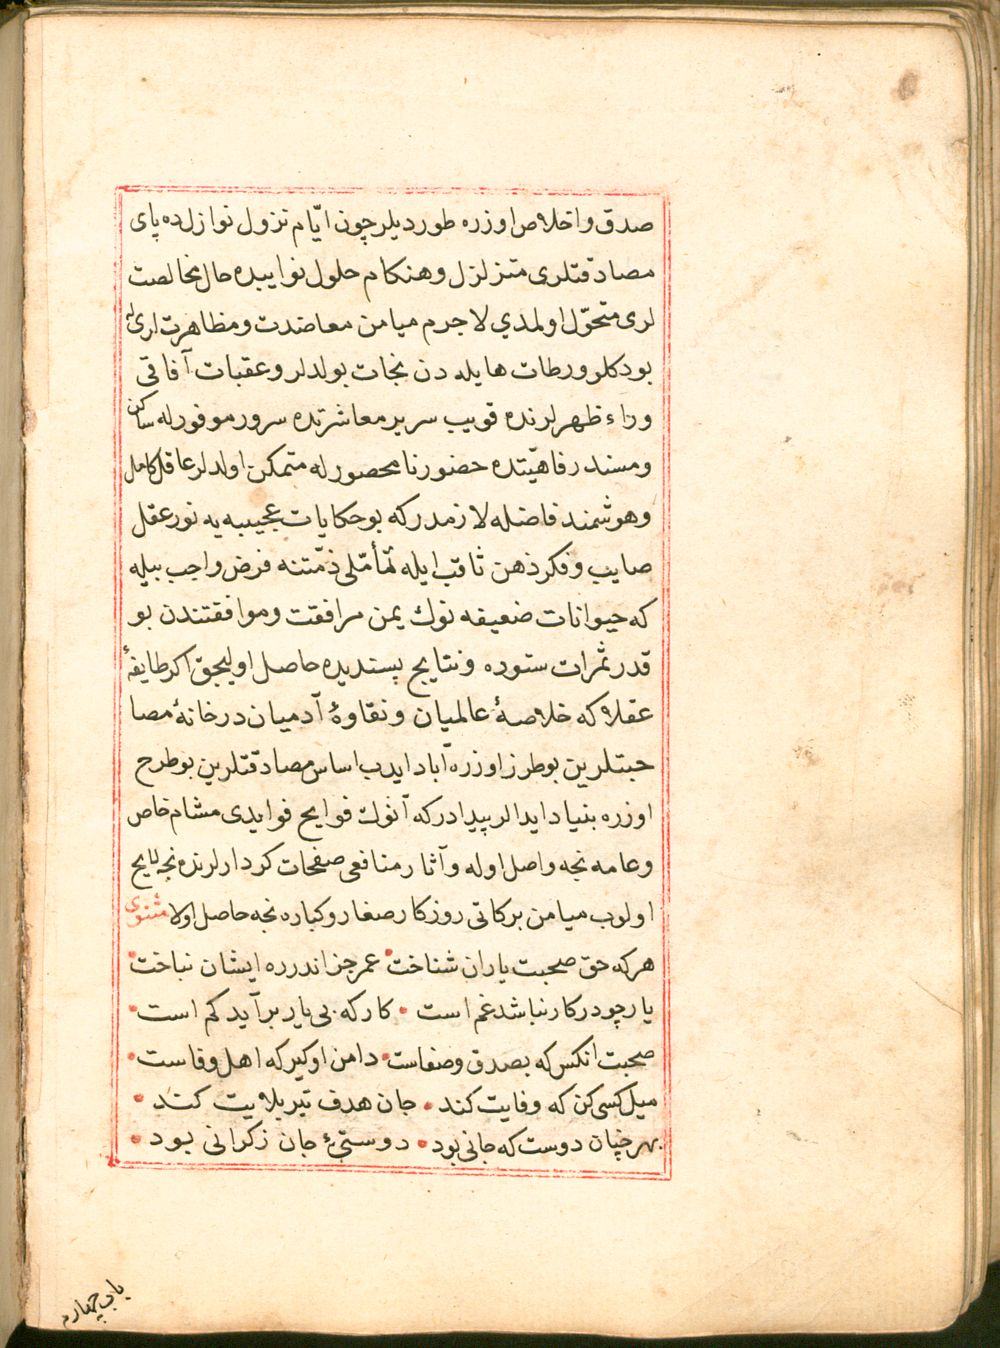 صدق واخلاص اوزره طورديلر چون ايّام نزول نوازلده پاى
مصادقتلرى متزلزل وهنكام حلول نوايبده حال مخالصت
لرى متحوّل اولمدي لاجرم ميامن معاضدت ومظاهرت لريله
بودكلو ورطات هايله دن نجات بولديلر وعقبات آفاقى
وراء ظهرلرنده قويب سرير معاشرتده سرور موفورله ساكن
ومسند رفاهيّتده حضور نامحصورله متمكن اولدلر عاقل كامل
وهوشمند فاضله لازمدركه بو حكايات عجيبه يه نور عقل
صايب وفكر ذهن ثاقب ايله تأمّلى ذمّتنه فرض واجب بيله
كه حيوانات ضعيفه نوك يمن مرافقت وموافقتندن بو
قدر ثمرات ستوده ونتايج پسنديده حاصل اوليجق اكر طايفهٔ
عقلا كه خلاصهٔ عالميان ونقاوهٔ آدميان در خانهٔ مصا
حبتلرين بو طرز اوزره آباد ايدب اساس مصادقتلرين بو طرح
اوزره بنياد ايدالر پيدا دركه آنوك فوايح فوايدى مشام خاص
وعامه نجه واصل اوله وآثار منافعى صفحات كردارلرنده نجه لايح
اولوب ميامن بركاتى روزكار صغار وكباره نجه حاصل اولا مثنوى
هركه حق صحبت ياران شناخت • عمر جز اندر ره ايشان نباخت •
يار چو در كار نباشد غم است • كار كه بى يار برآيد كم است •
صحبت انكس كه بصدق وصفاست • دامن او كير كه اهل وفاست •
ميل كسى كن كه وفايت كند • جان هدف تير بلايت كند •
بهر چنان دوست كه جانى بود • دوستىٔ جان ز كرانى بود •
باب چهارم